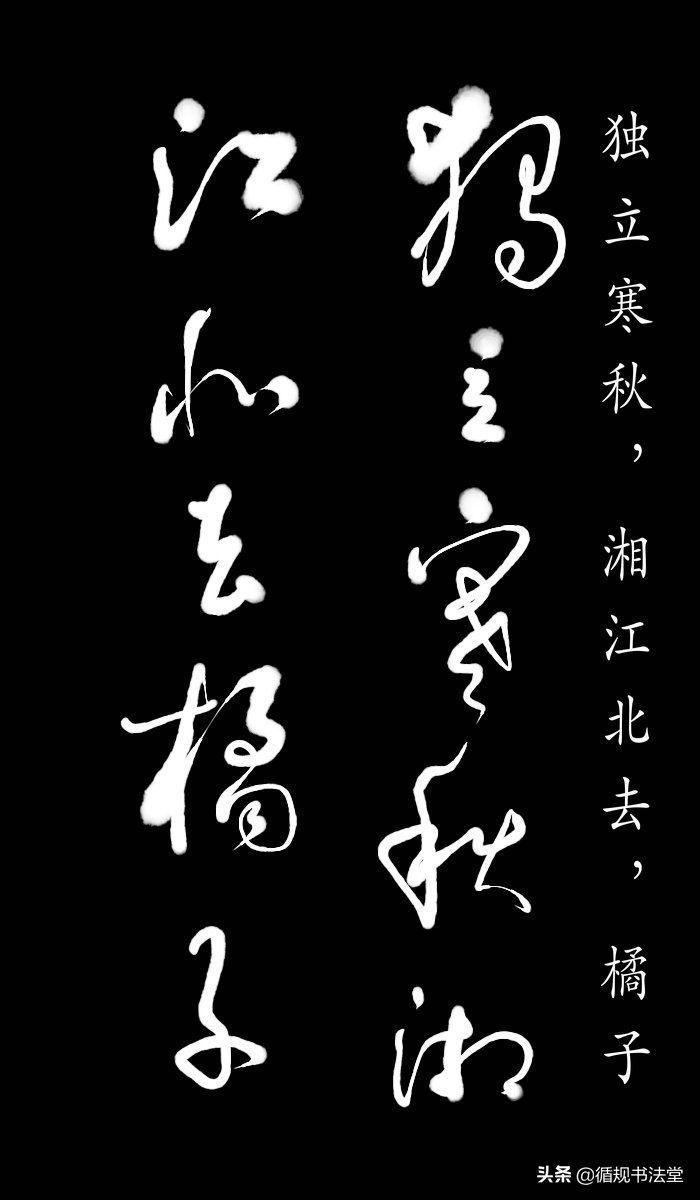 独立寒秋，湘江北去，橘子
獨立寒秋湘
江北去橘子
头条 @循规书法堂